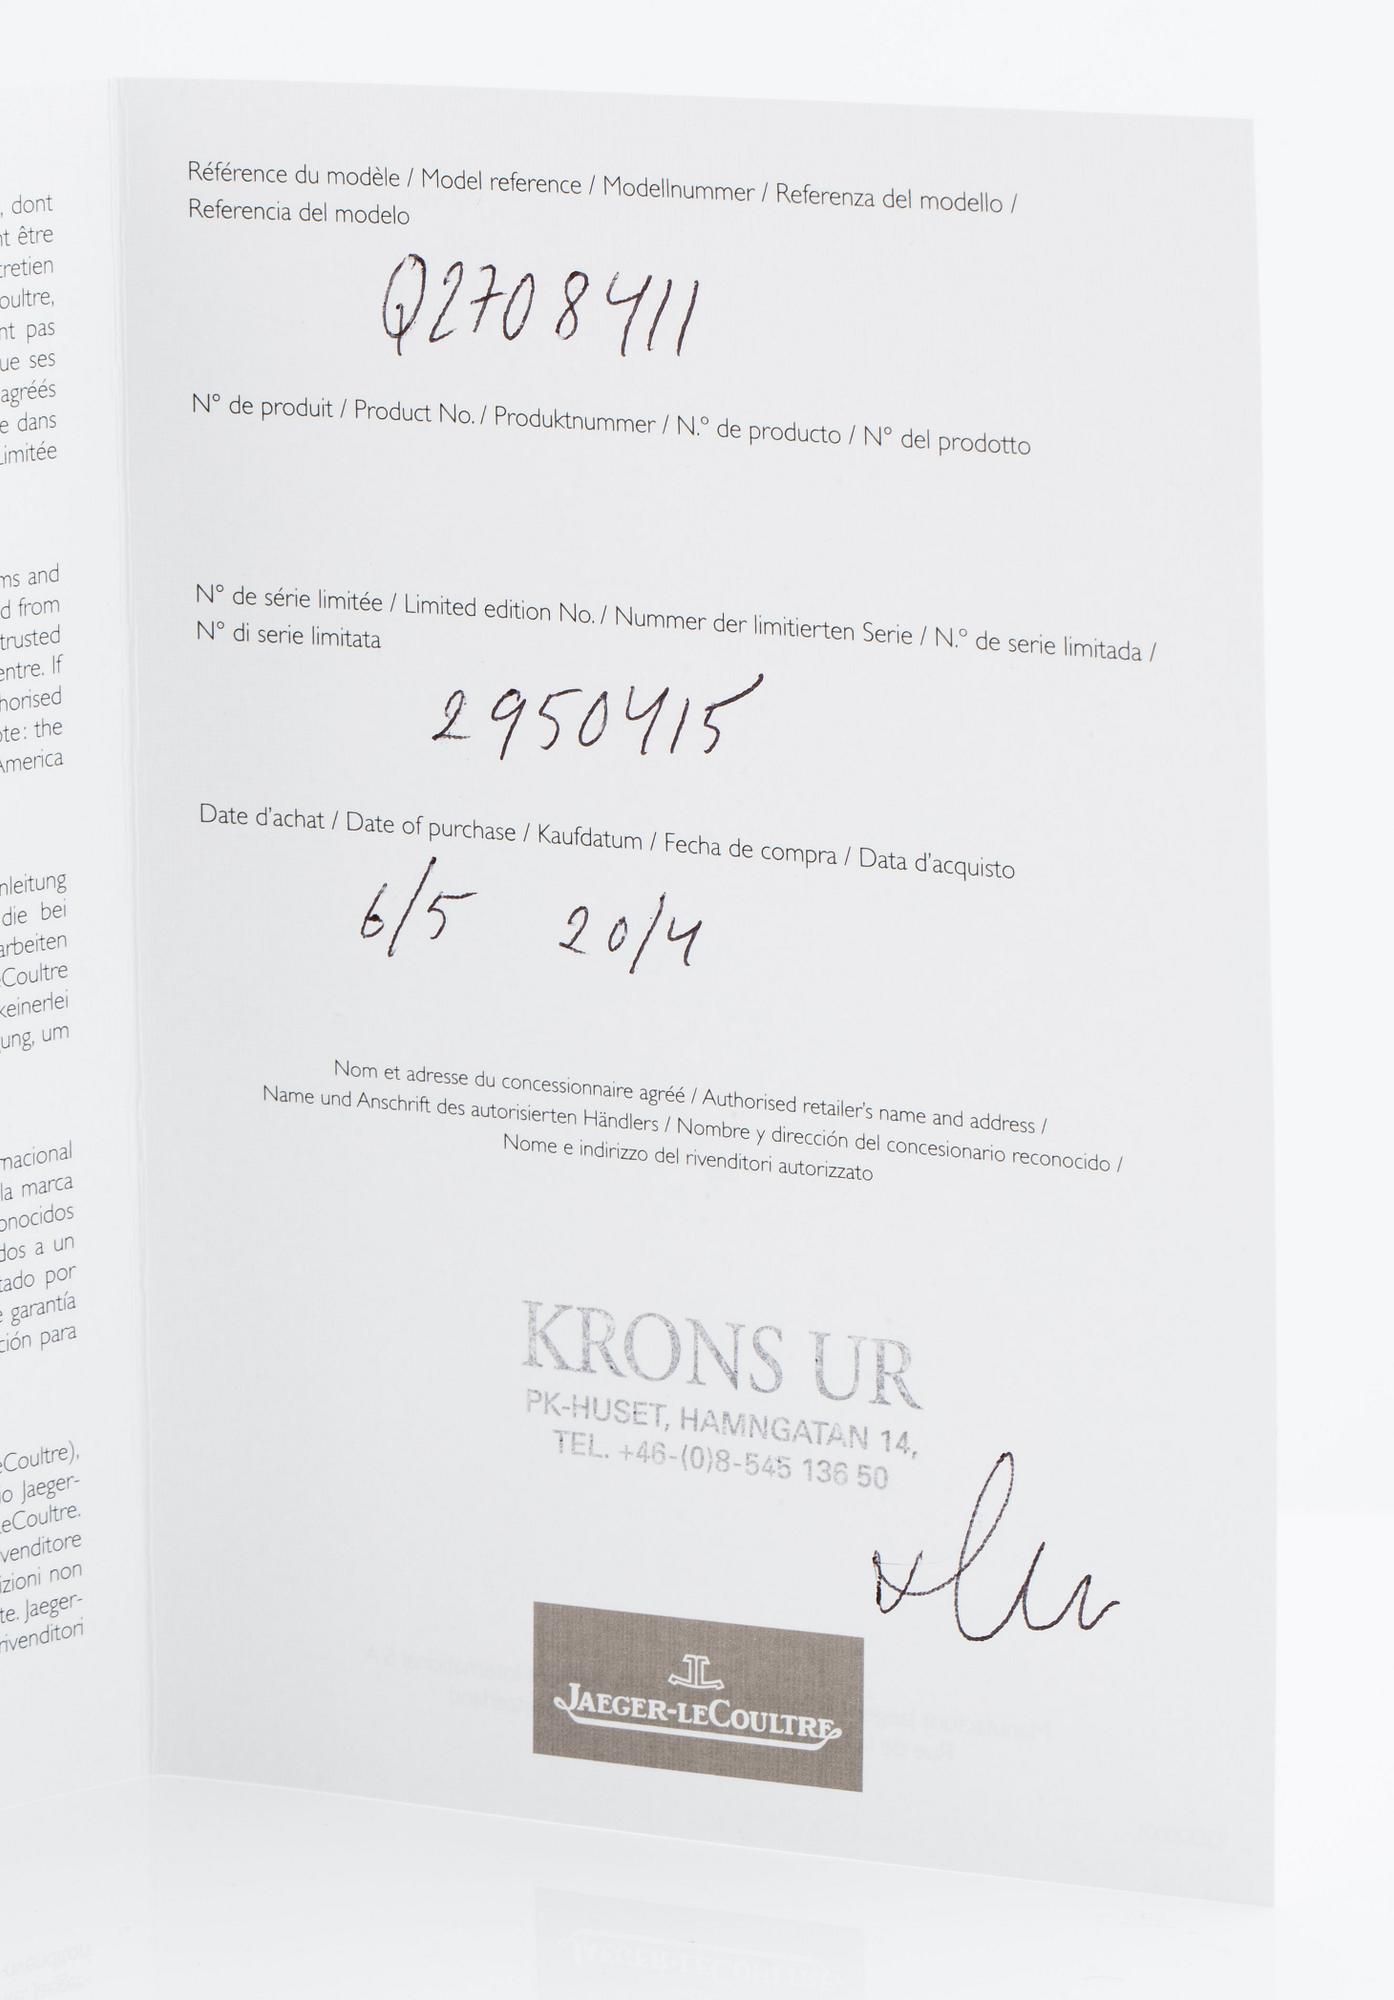 , dont
nt être
tretien
oultre,
nt pas
ue ses
agréés
e dans
Limitée
ms and
d from
trusted
entre. If
horised
ote: the
America
nleitung
die bei
arbeiten
eCoultre
keinerlei
gung, um
nacional
la marca
onocidos
dos a un
tado por
e garantía
ción para
eCoultre),
io Jaeger-
LeCoultre.
venditore
izioni non
te. Jaeger-
rivenditori
Référence du modèle / Model reference / Modellnummer / Referenza del modello /
Referencia del modelo
Q2708411
N° de produit / Product No. / Produktnummer / N.° de producto / N° del prodotto
N° de série limitée / Limited edition No. / Nummer der limitierten Serie / N.° de serie limitada /
N° di serie limitata
2950415
Date d'achat / Date of purchase / Kaufdatum / Fecha de compra / Data d'acquisto
6/5 20/4
Nom et adresse du concessionnaire agréé / Authorised retailer's name and address /
Name und Anschrift des autorisierten Händlers / Nombre y dirección del concesionario reconocido /
Nome e indirizzo del rivenditori autorizzato
KRONS UR
PK-HUSET, HAMNGATAN 14,
TEL. +46-(0)8-545 136 50
JAEGER-LECOULTRE